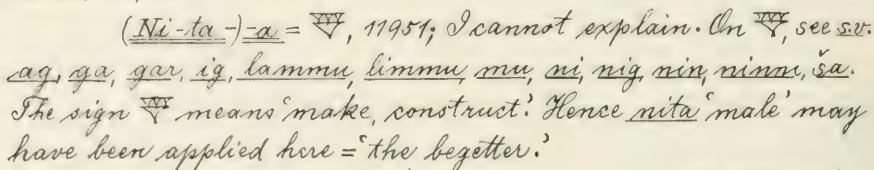 (Ni-ta-)-a = 𒐼, 11951; I cannot explain. On 𒐼, see s.v.
ag, ga, gar, ig, lammu, limmu, mu, ni, nig, nin, ninni, ša.
The sign 𒐼 means 'make, construct.' Hence nita 'male' may
have been applied here = 'the begetter.'